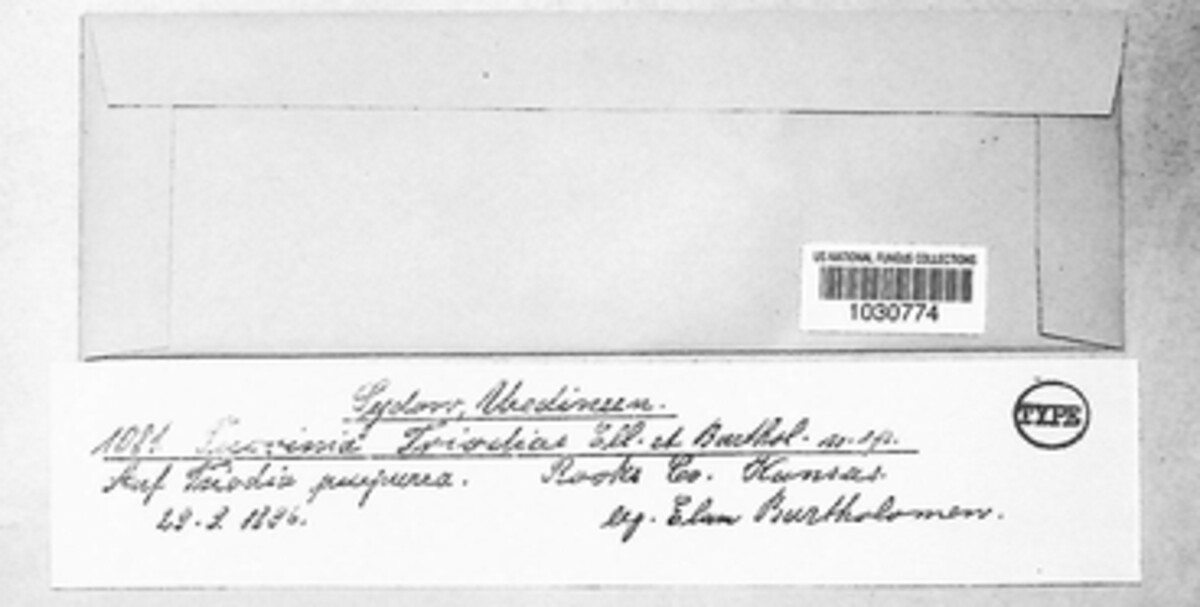 US NATIONAL FUNGUS COLLECTIONS
1030774
Sydow, Uredineen.
TYPE
1081 Puccinia Triodiae Ell. et Barthol. n. sp.
Auf Triodia purpurea. Rooks Co. Kansas.
29. 9. 1896. leg. Elam Bartholomew.